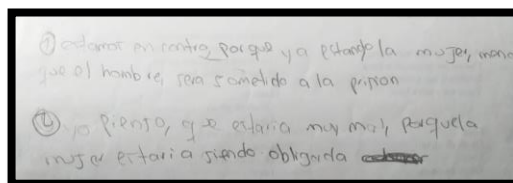 ① estamos en contra, porque ya estando la mujer, menor
que el hombre, sera sometido a la prision
② yo pienso, que estaria muy mal, porque la
mujer estaria siendo obligada